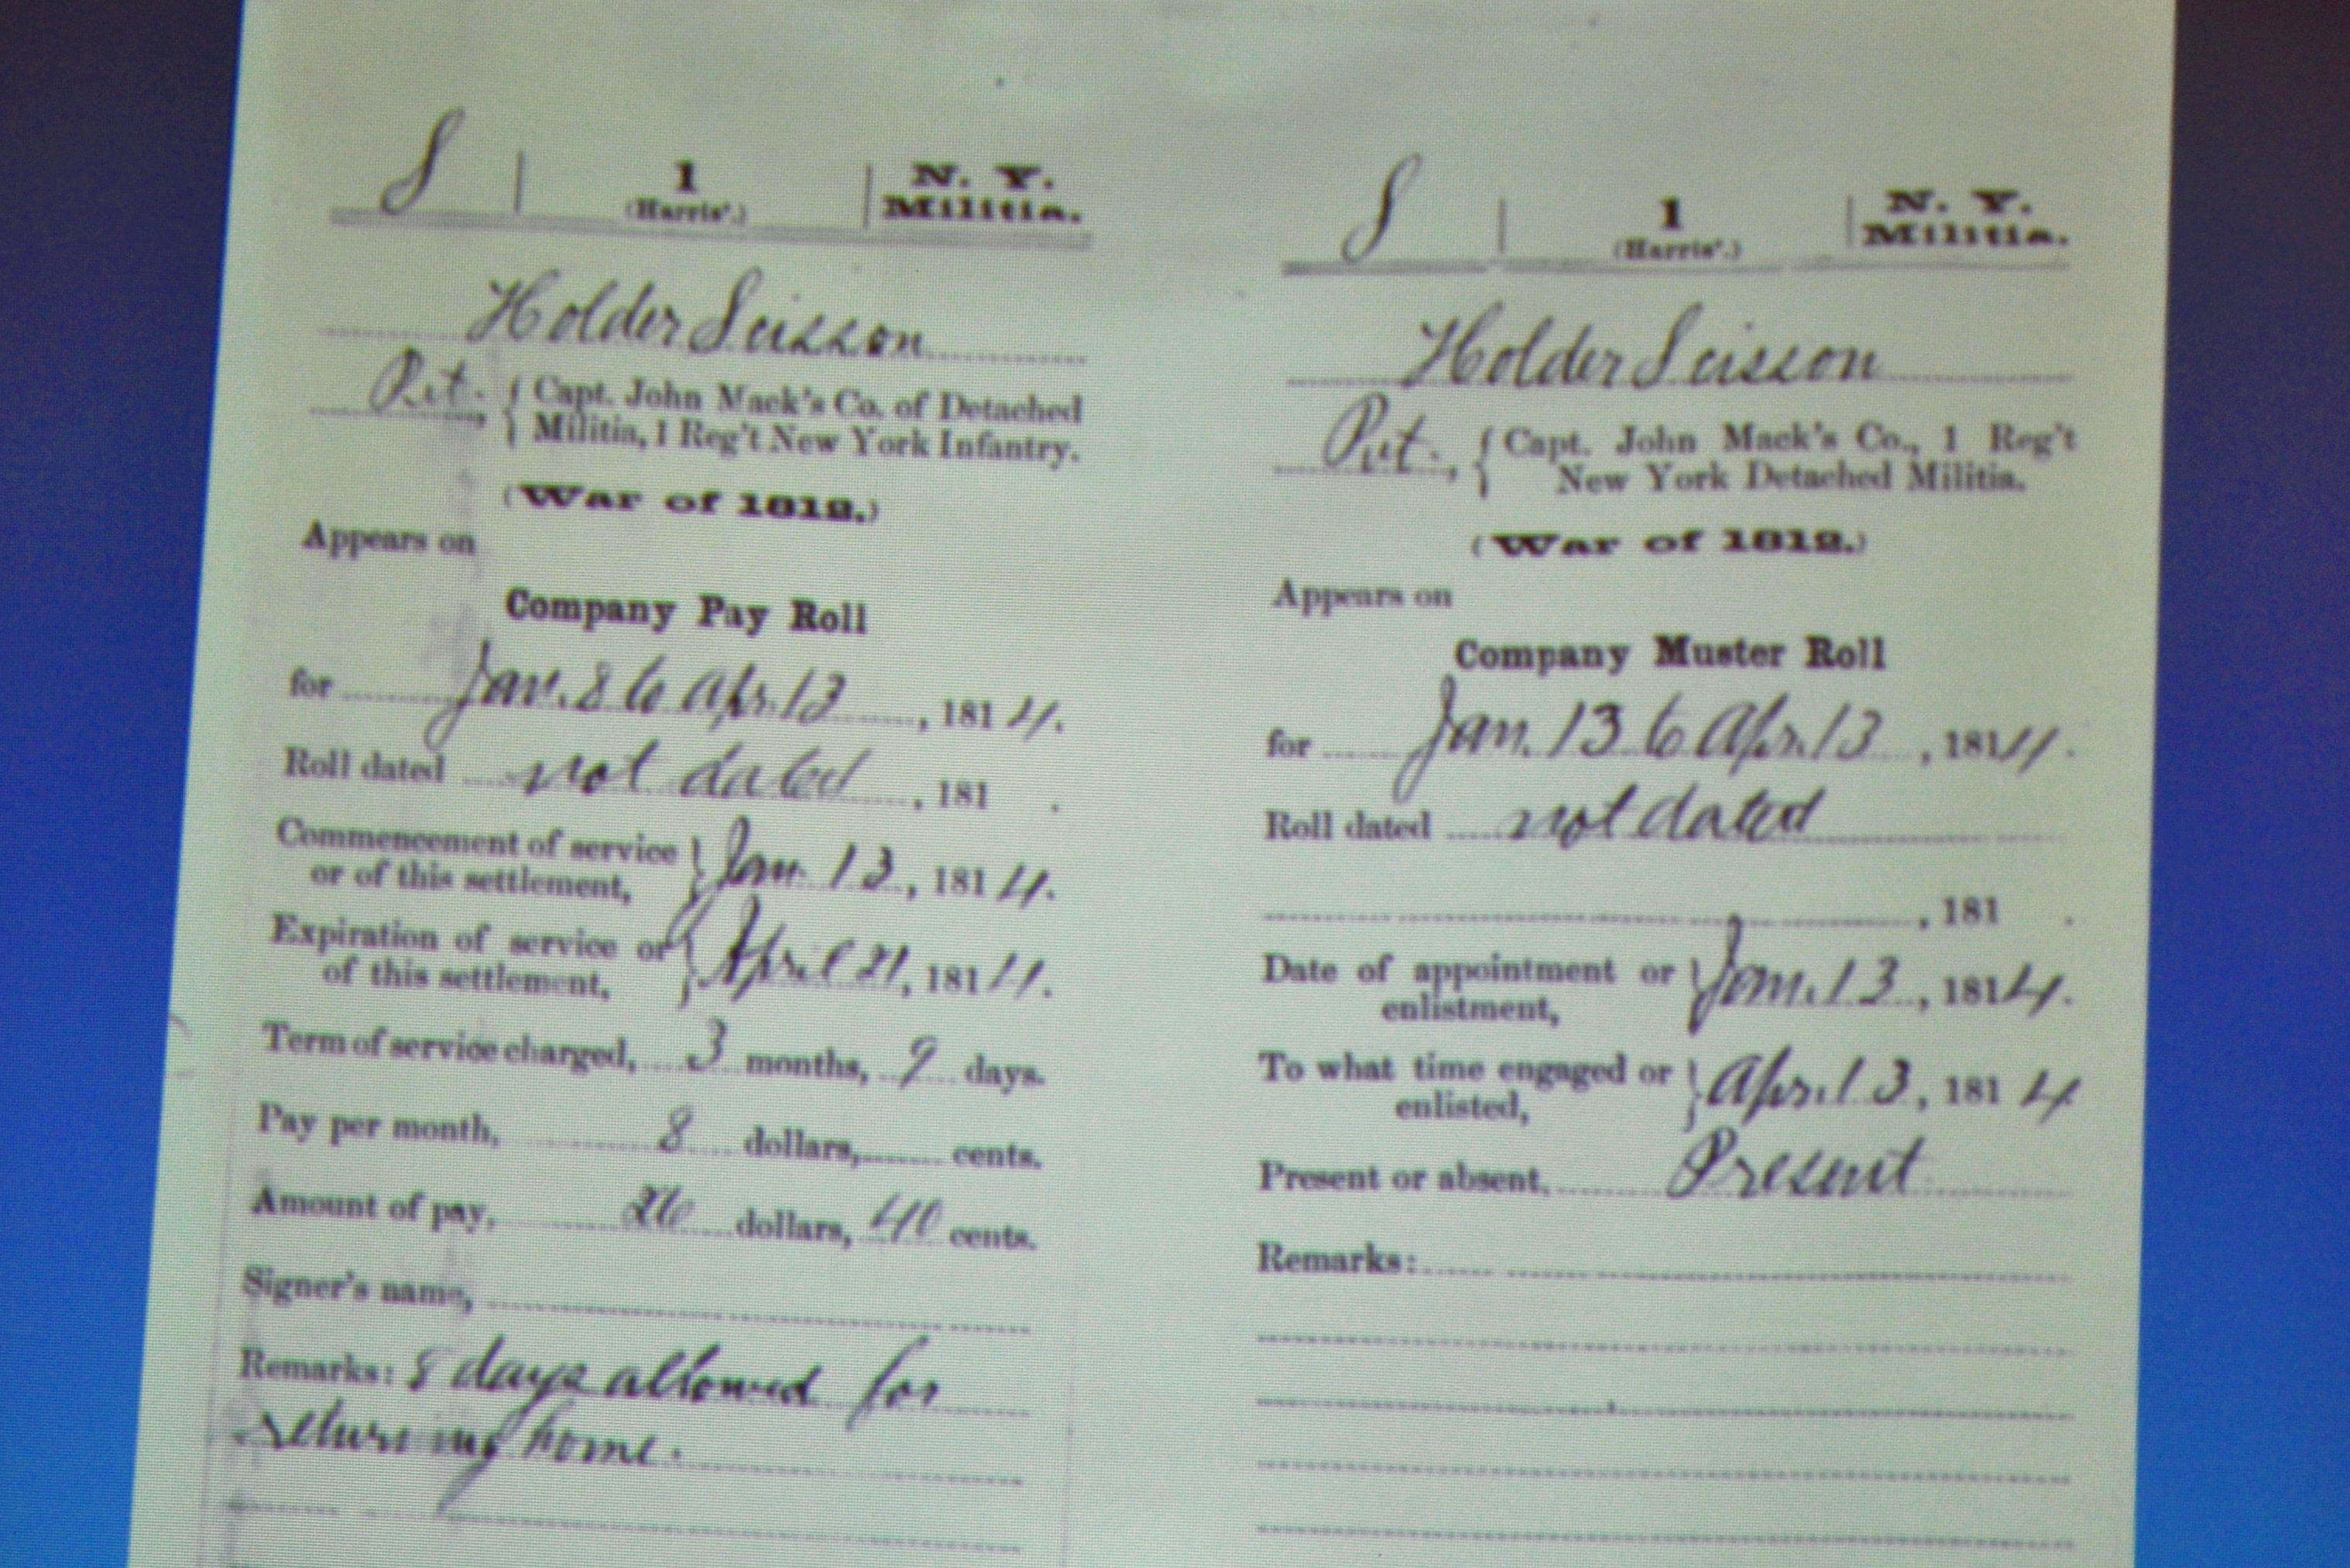 S | 1 | N. Y.
(Harris'.) Militia.
Holder Scisson
Pvt., { Capt. John Mack's Co. of Detached
Militia, 1 Reg't New York Infantry.
(War of 1812.)
Appears on
Company Pay Roll
for Jan. 8 to Apr. 13, 1814.
Roll dated not dated, 181 .
Commencement of service
or of this settlement, } Jan. 13, 1814.
Expiration of service or
of this settlement, } April 21, 1814.
Term of service charged, 3 months, 9 days.
Pay per month, 8 dollars, cents.
Amount of pay, 26 dollars, 40 cents.
Signer's name,
Remarks: 8 days allowed for
returning home.
S | 1 | N. Y.
(Harris'.) Militia.
Holder Scisson
Pvt., { Capt. John Mack's Co., 1 Reg't
New York Detached Militia.
(War of 1812.)
Appears on
Company Muster Roll
for Jan. 13 to Apr. 13, 1814.
Roll dated not dated
, 181 .
Date of appointment or
enlistment, } Jan. 13, 1814.
To what time engaged or
enlisted, } Apr. 13, 1814
Present or absent, Present
Remarks: